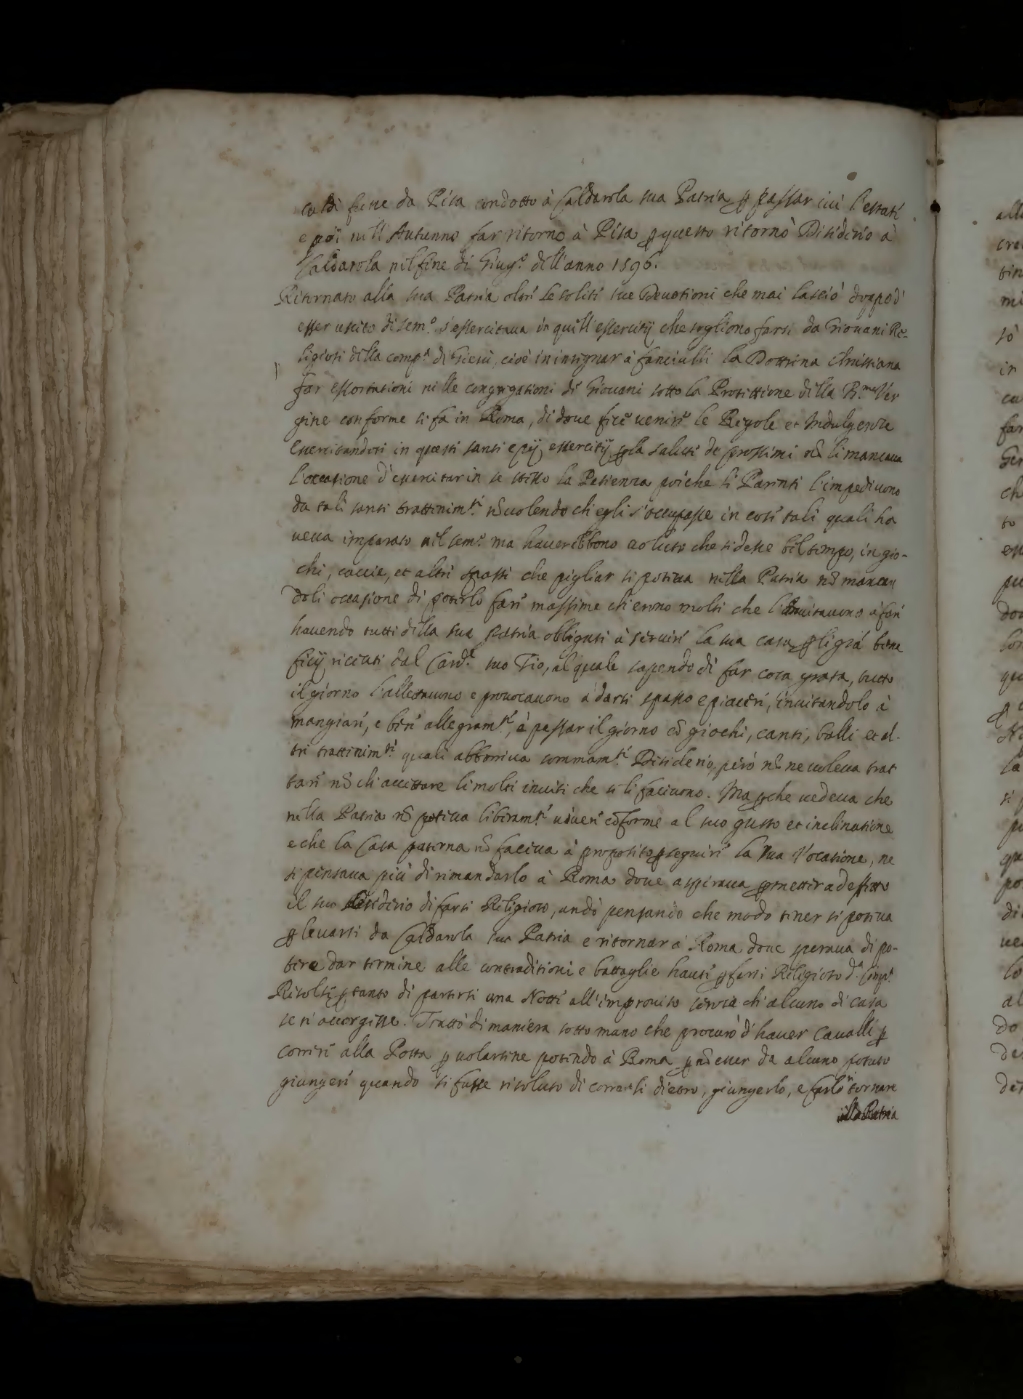 fine da Pisa condotto à Caldarola sua Patria ꝑ passar iui l'estate
e poi nell'Autunno far ritorno à Pisa ꝑ questo ritornò Desiderio à
Caldarola nel fine di Giug.º dell'anno 1596.
Ritornato alla sua Patria oltre le solite sue Deuotioni che mai lasciò doppo d'
esser uscito di sem.º s'essercitaua in quell'essercitij che sogliono farsi da Giouani Re-
ligiosi della comp.ª di Giesù, cioè in insegnar à fanciulli la Dottrina Christiana
far essortationi nelle congregationi di Giouani sotto la Protettione della B.ma Ver
gine conforme si fa in Roma, di doue fece uenire le Regole et Indulgenze
Essercitandosi in questi santi e pij essercitij ꝑ la salute de prossimi nō li mancaua
l'occasione d'essercitar in se stesso la Patienza poiche li Parenti l'impediuono
da tali santi trattenim.ti nō uolendo ch'egli s'occupasse in cose tali quali ha
ueua imparato nel sem.º ma hauerebbono uoluto che si desse bel tempo, in gio-
chi, caccie, et altri spassi che pigliar si poteua nella Patria nō mancan
doli occasione di poterlo fare massime ch'erono molti che l'inuitauono a fare
hauendo tutti della sua Patria obligati à seruire la sua casa ꝑ li gia bene
ficij riceuti dal Card.le suo Tio, al quale sapendo di far cosa grata, tutto
il giorno l'allettauono e prouocauono a darsi spasso e piacere, inuitandolo à
mangiare, e bere allegram.te, à passar il giorno cō giochi, canti, balli et al-
tri trattenim.ti quali abborriua sommam.te Desiderio, però nō ne uoleua trat
tare nō ch'accettare le molti inuiti che se li faceuono. Ma ꝑche uedeua che
nella Patria nō poteua liberam.te uiuere cōforme al suo gusto et inclinatione
e che la Casa paterna nō faceua à proposito ꝑ seguire la sua Vocatione, ne
si pensaua più di rimandarlo à Roma doue aspiraua ꝑ metter ad effetto
il suo Desiderio di farsi Religioso, andò pensando che modo tener si poteua
ꝑ leuarsi da Caldarola sua Patria e ritornar à Roma doue speraua di po-
tere dar termine alle contraditioni e battaglie hauute ꝑ farsi Religioso d.ª Comp.ª
Risolse ꝑ tanto di partirsi una Notte all'improuiso senza ch'alcuno di casa
se n'accorgesse. Trattò di maniera sotto mano che procurò d'hauer Caualli ꝑ
correre alla Posta ꝑ uolarsene potendo à Roma ꝑ nō esser da alcuno potuto
giungere quando si fusse risoluto di correrli dietro, giungerlo, e farlo tornare
alla Patria